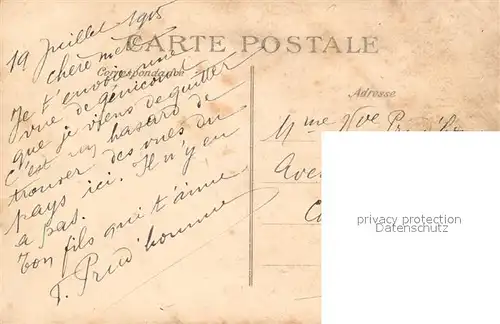 19 Juillet 1915
CARTE POSTALE
chère mère
Correspondance
Je t'envoie une
vue de Génicourt
que je viens de quitter
C'est un hasard de
trouver des vues du
pays ici. Il n'y en
a pas.
Ton fils qui t'aime
F. Prud'homme
Adresse
Mme Vve
privacy protection
Datenschutz